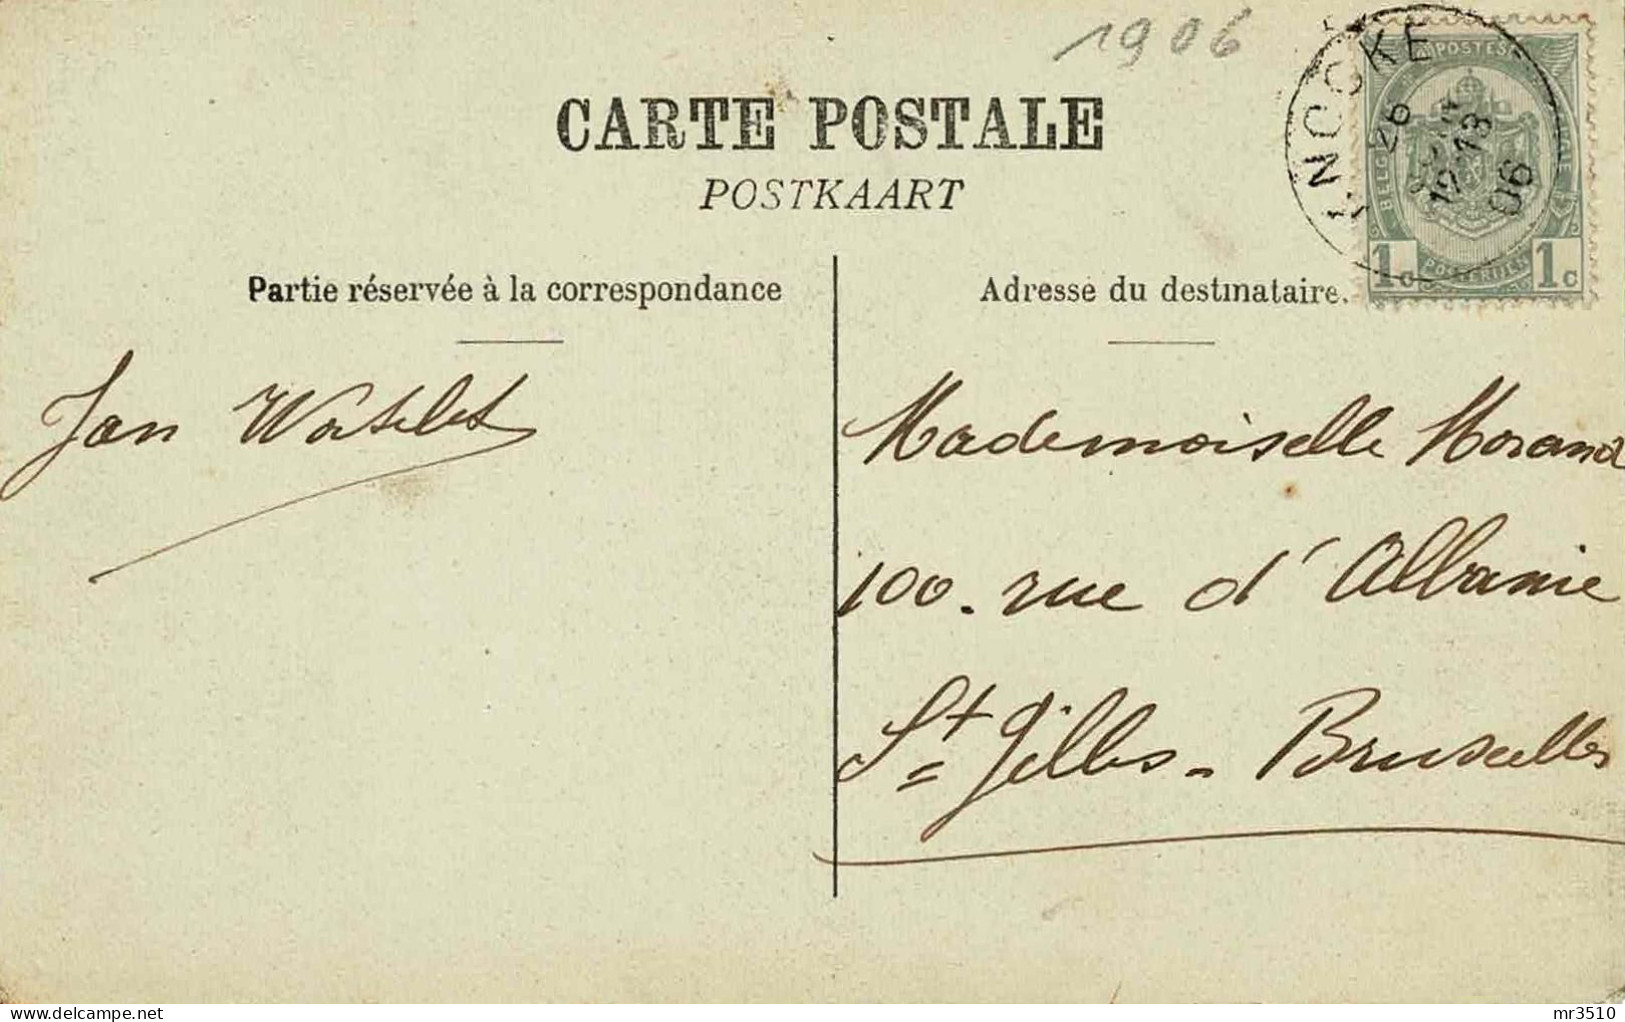 1906
CARTE POSTALE
POSTKAART
KNOCKE
26
12-13
06
POSTES
1c POSTERIJEN 1c
Partie réservée à la correspondance
Adresse du destinataire.
Jan Watelet
Mademoiselle Morand
100. rue d'Albanie
St Gilles - Bruxelles
www.delcampe.net
mr3510